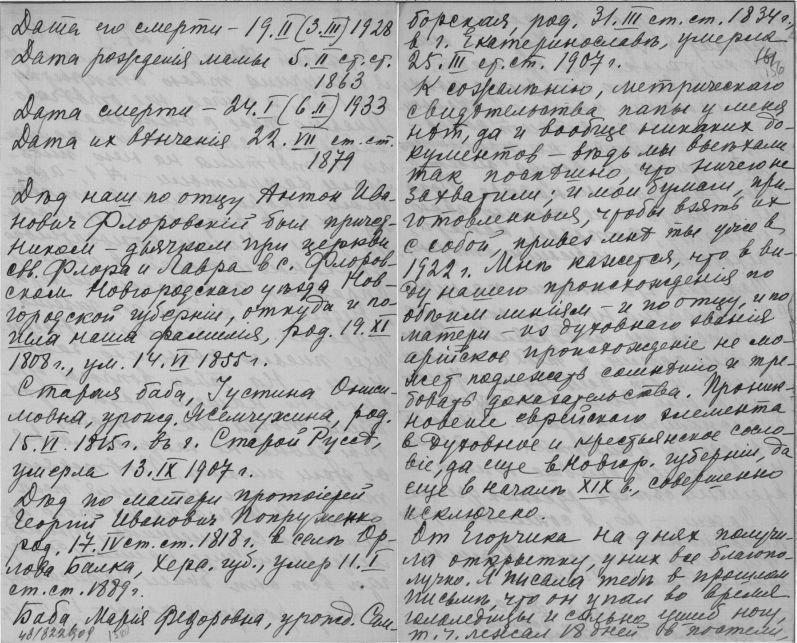 Дата его смерти – 19.II (3.III) 1928
Дата рожденія мамы 5.II ст. ст.
1863
Дата смерти – 24.I (6.II) 1933
Дата их вѣнчанія 22.VII ст. ст.
1879
Дѣд наш по отцу Антон Ива-
нович Флоровскій был причет-
ником – дьячком при церкви
свв. Флора и Лавра в с. Флоров-
ском Новгородскаго уѣзда Нов-
городской губерніи, откуда и по-
шла наша фамилія, род. 19.XI
1808 г., ум. 14.VI 1855 г.
Старая баба, Іустина Ониси-
мовна, урожд. Жемчужина, род.
15.VI 1815 г. въ г. Старой Руссѣ,
умерла 13.IX 1907 г.
Дѣд по матери протоіерей
Георгій Иванович Попруженко
род. 17.IV ст. ст. 1818 г. в селѣ Ор-
лова Балка, Херс. губ., умер 11.I
ст. ст. 1889 г.
Баба Марія Федоровна, урожд. Сам-
борская, род. 31.III ст. ст. 1834 г.
в г. Екатеринославѣ, умерла
25.III ст. ст. 1907 г.
К сожалѣнію, метрическаго
свидѣтельства папы у меня
нѣт, да и вообще никаких до-
кументов – вѣдь мы выѣхали
так поспѣшно, что ничего не
захватили; и мои бумаги, при-
готовленныя, чтобы взять их
с собой, привез мнѣ ты уже в
1922 г. Мнѣ кажется, что в ви-
ду нашего происхожденія по
обѣим линіям – и по отцу, и по
матери – из духовнаго званія
арійское происхожденіе не мо-
жет подлежать сомнѣнію и тре-
бовать доказательства. Проник-
новеніе еврейскаго элемента
в духовное и крестьянское сосло-
віе, да еще в Новгор. губерніи, да
еще в началѣ XIX в, совершенно
исключено.
От Егорчика на днях получи-
ла открытку, у них все благопо-
лучно. Я писала тебѣ в прошлом
письмѣ, что он упал во время
гололедицы и сильно ушиб ногу,
т. ч. лежал 18 дней в постели,